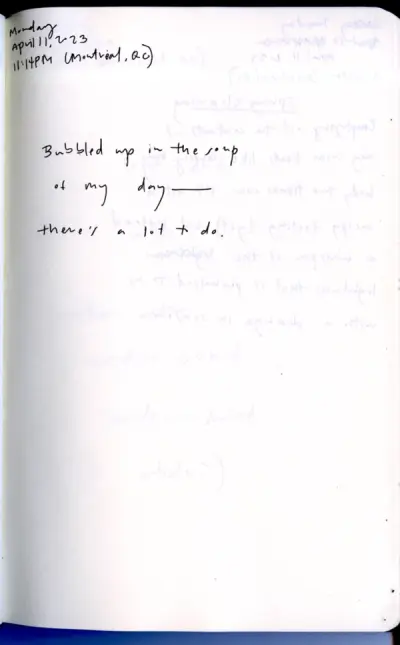 Monday
April 11, 2023
11:14PM (Montreal, QC)
Bubbled up in the soup
of my day —
there's a lot to do.